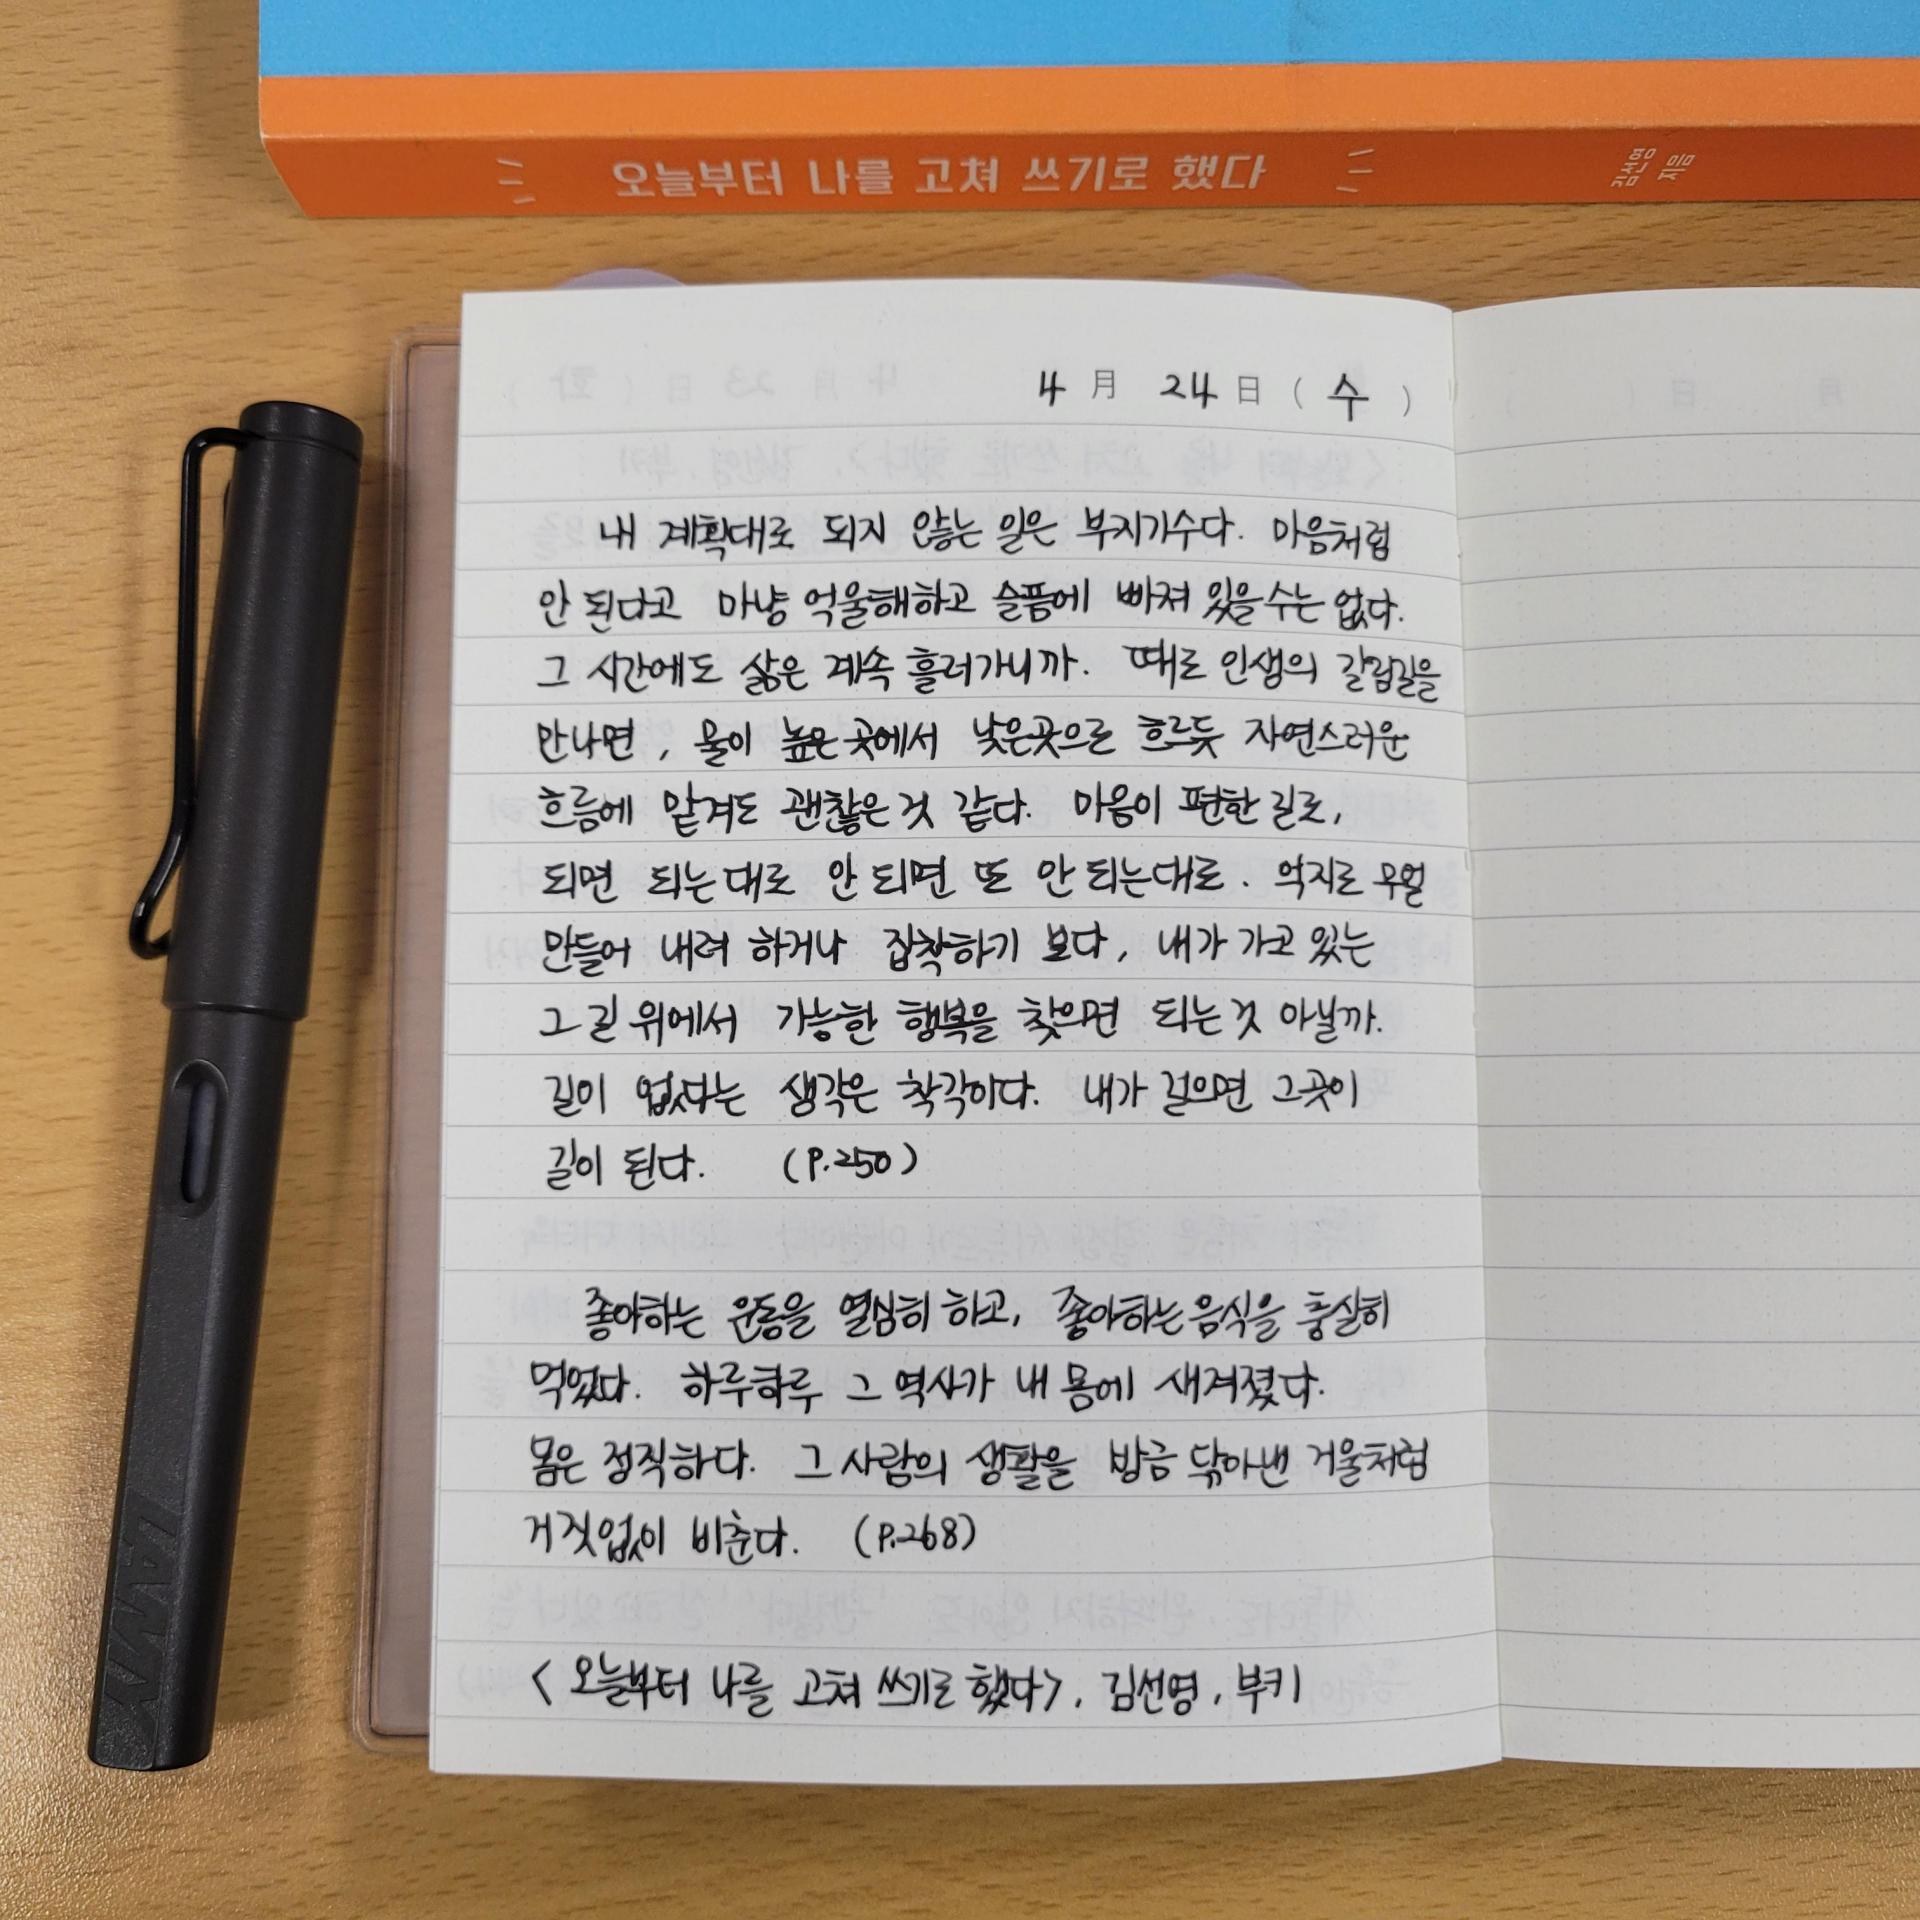 오늘부터 나를 고쳐 쓰기로 했다
김선영
지음
4月 24日(수)
내 계획대로 되지 않는 일은 부지기수다. 마음처럼
안 된다고 마냥 억울해하고 슬픔에 빠져 있을수는 없다.
그 시간에도 삶은 계속 흘러가니까. 때로 인생의 갈림길을
만나면, 물이 높은 곳에서 낮은곳으로 흐르듯 자연스러운
흐름에 맡겨도 괜찮은 것 같다. 마음이 편한 길로,
되면 되는대로 안 되면 또 안 되는대로. 억지로 무얼
만들어 내려 하거나 집착하기 보다, 내가 가고 있는
그 길 위에서 가능한 행복을 찾으면 되는 것 아닐까.
길이 없다는 생각은 착각이다. 내가 걸으면 그곳이
길이 된다. (P.250)
좋아하는 운동을 열심히 하고, 좋아하는 음식을 충실히
먹었다. 하루하루 그 역사가 내 몸에 새겨졌다.
몸은 정직하다. 그 사람의 생활을 방금 닦아낸 거울처럼
거짓없이 비춘다. (P.268)
<오늘부터 나를 고쳐 쓰기로 했다>, 김선영, 부키
LAMY